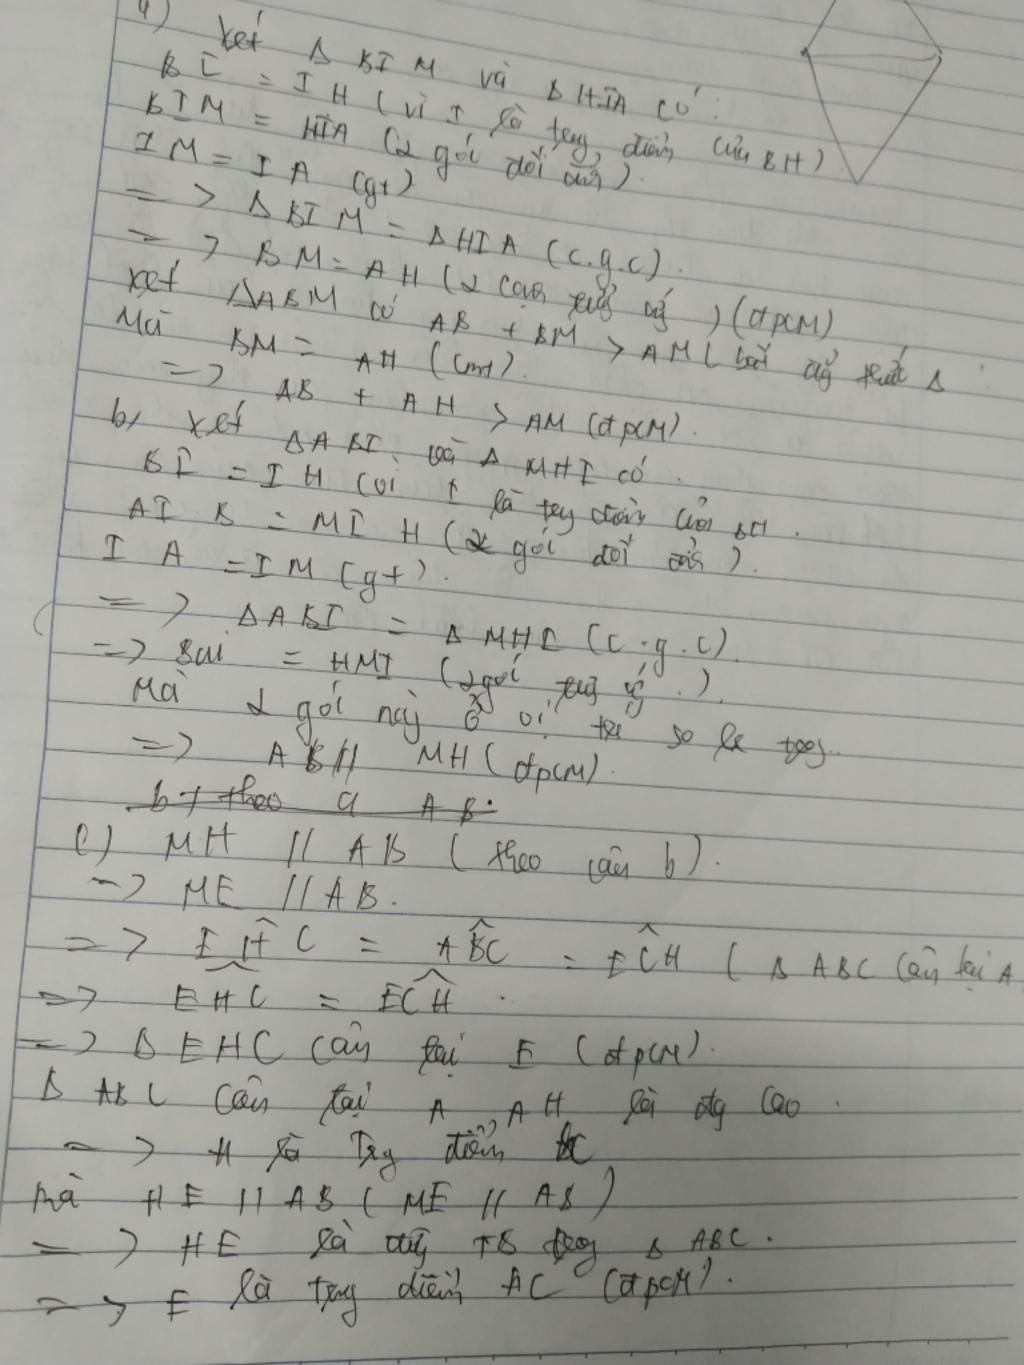 a) Xét Δ BIM và Δ HIA có:
BI = IH (vì I là trg điểm của BH)
BIM = HIA (2 góc đối đỉnh).
IM = IA (gt)
=> Δ BIM = Δ HIA (c.g.c).
=> BM = AH (2 cạnh tứng ứng) (đpcM)
Xét ΔABM có AB + BM > AM (bất đẳng thức Δ
Mà BM = AH (cmt).
=> AB + AH > AM (đpcM).
b, Xét ΔABI và Δ MHI có
BI = IH (vì I là trg điểm của BH.
AIB = MIH (2 góc đối đỉnh).
IA = IM (gt).
=> ΔABI = Δ MHI (c.g.c).
=> BAI = HMI (2 góc tứng ứng.).
Mà 2 góc này ở vị trí so le trog.
=> AB // MH (đpcM).
b, theo a AB.
c) MH // AB (theo câu b).
=> ME // AB.
=> EĤC = AB̂C = EĈH (Δ ABC cân tại A
=> EHC = ECH.
=> Δ EHC cân tại E (đpcM).
Δ ABC cân tại A, AH là đg cao.
=> H là Trg điểm BC
mà HE // AB (ME // AB)
=> HE là đg TB trog Δ ABC.
=> E là trg điểm AC (đpcM).